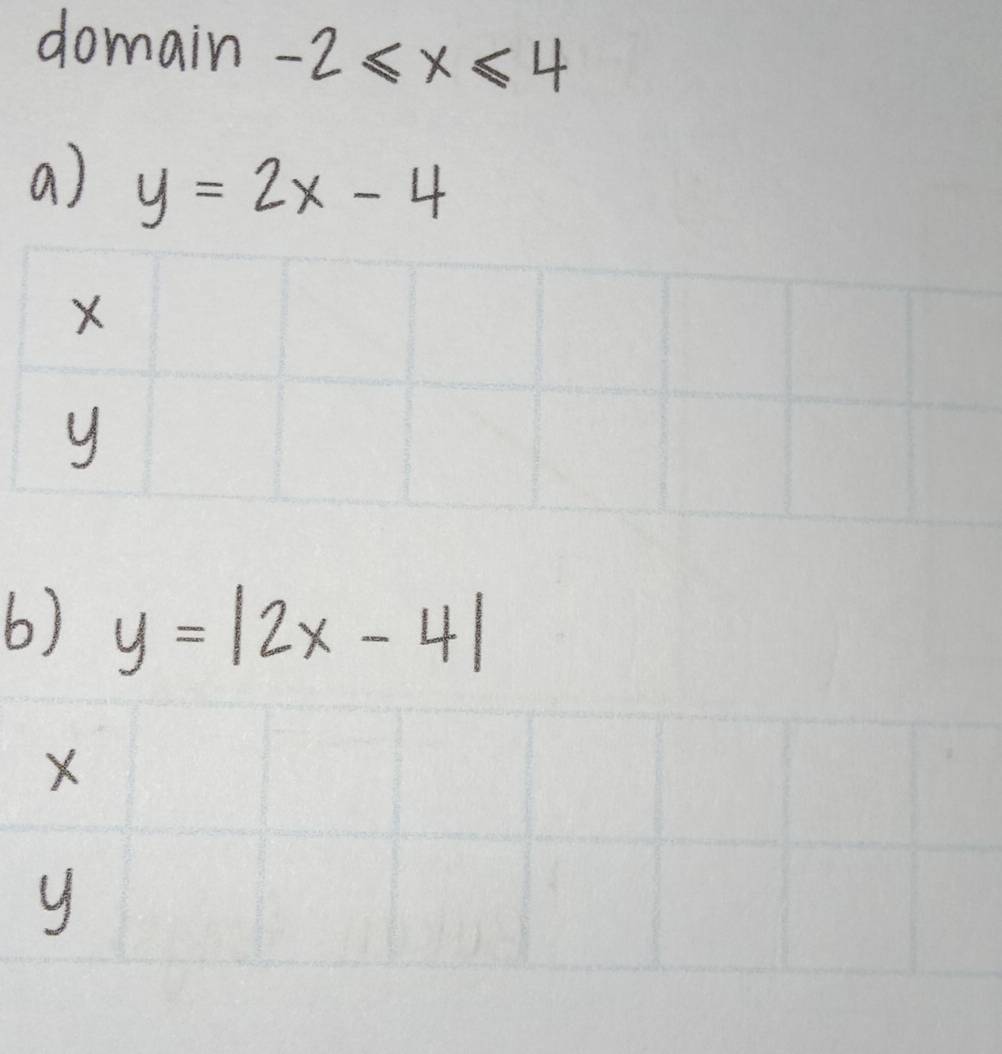 domain -2 ⩽ x ⩽ 4
a) y = 2x - 4
x
y
b) y = |2x - 4|
x
y